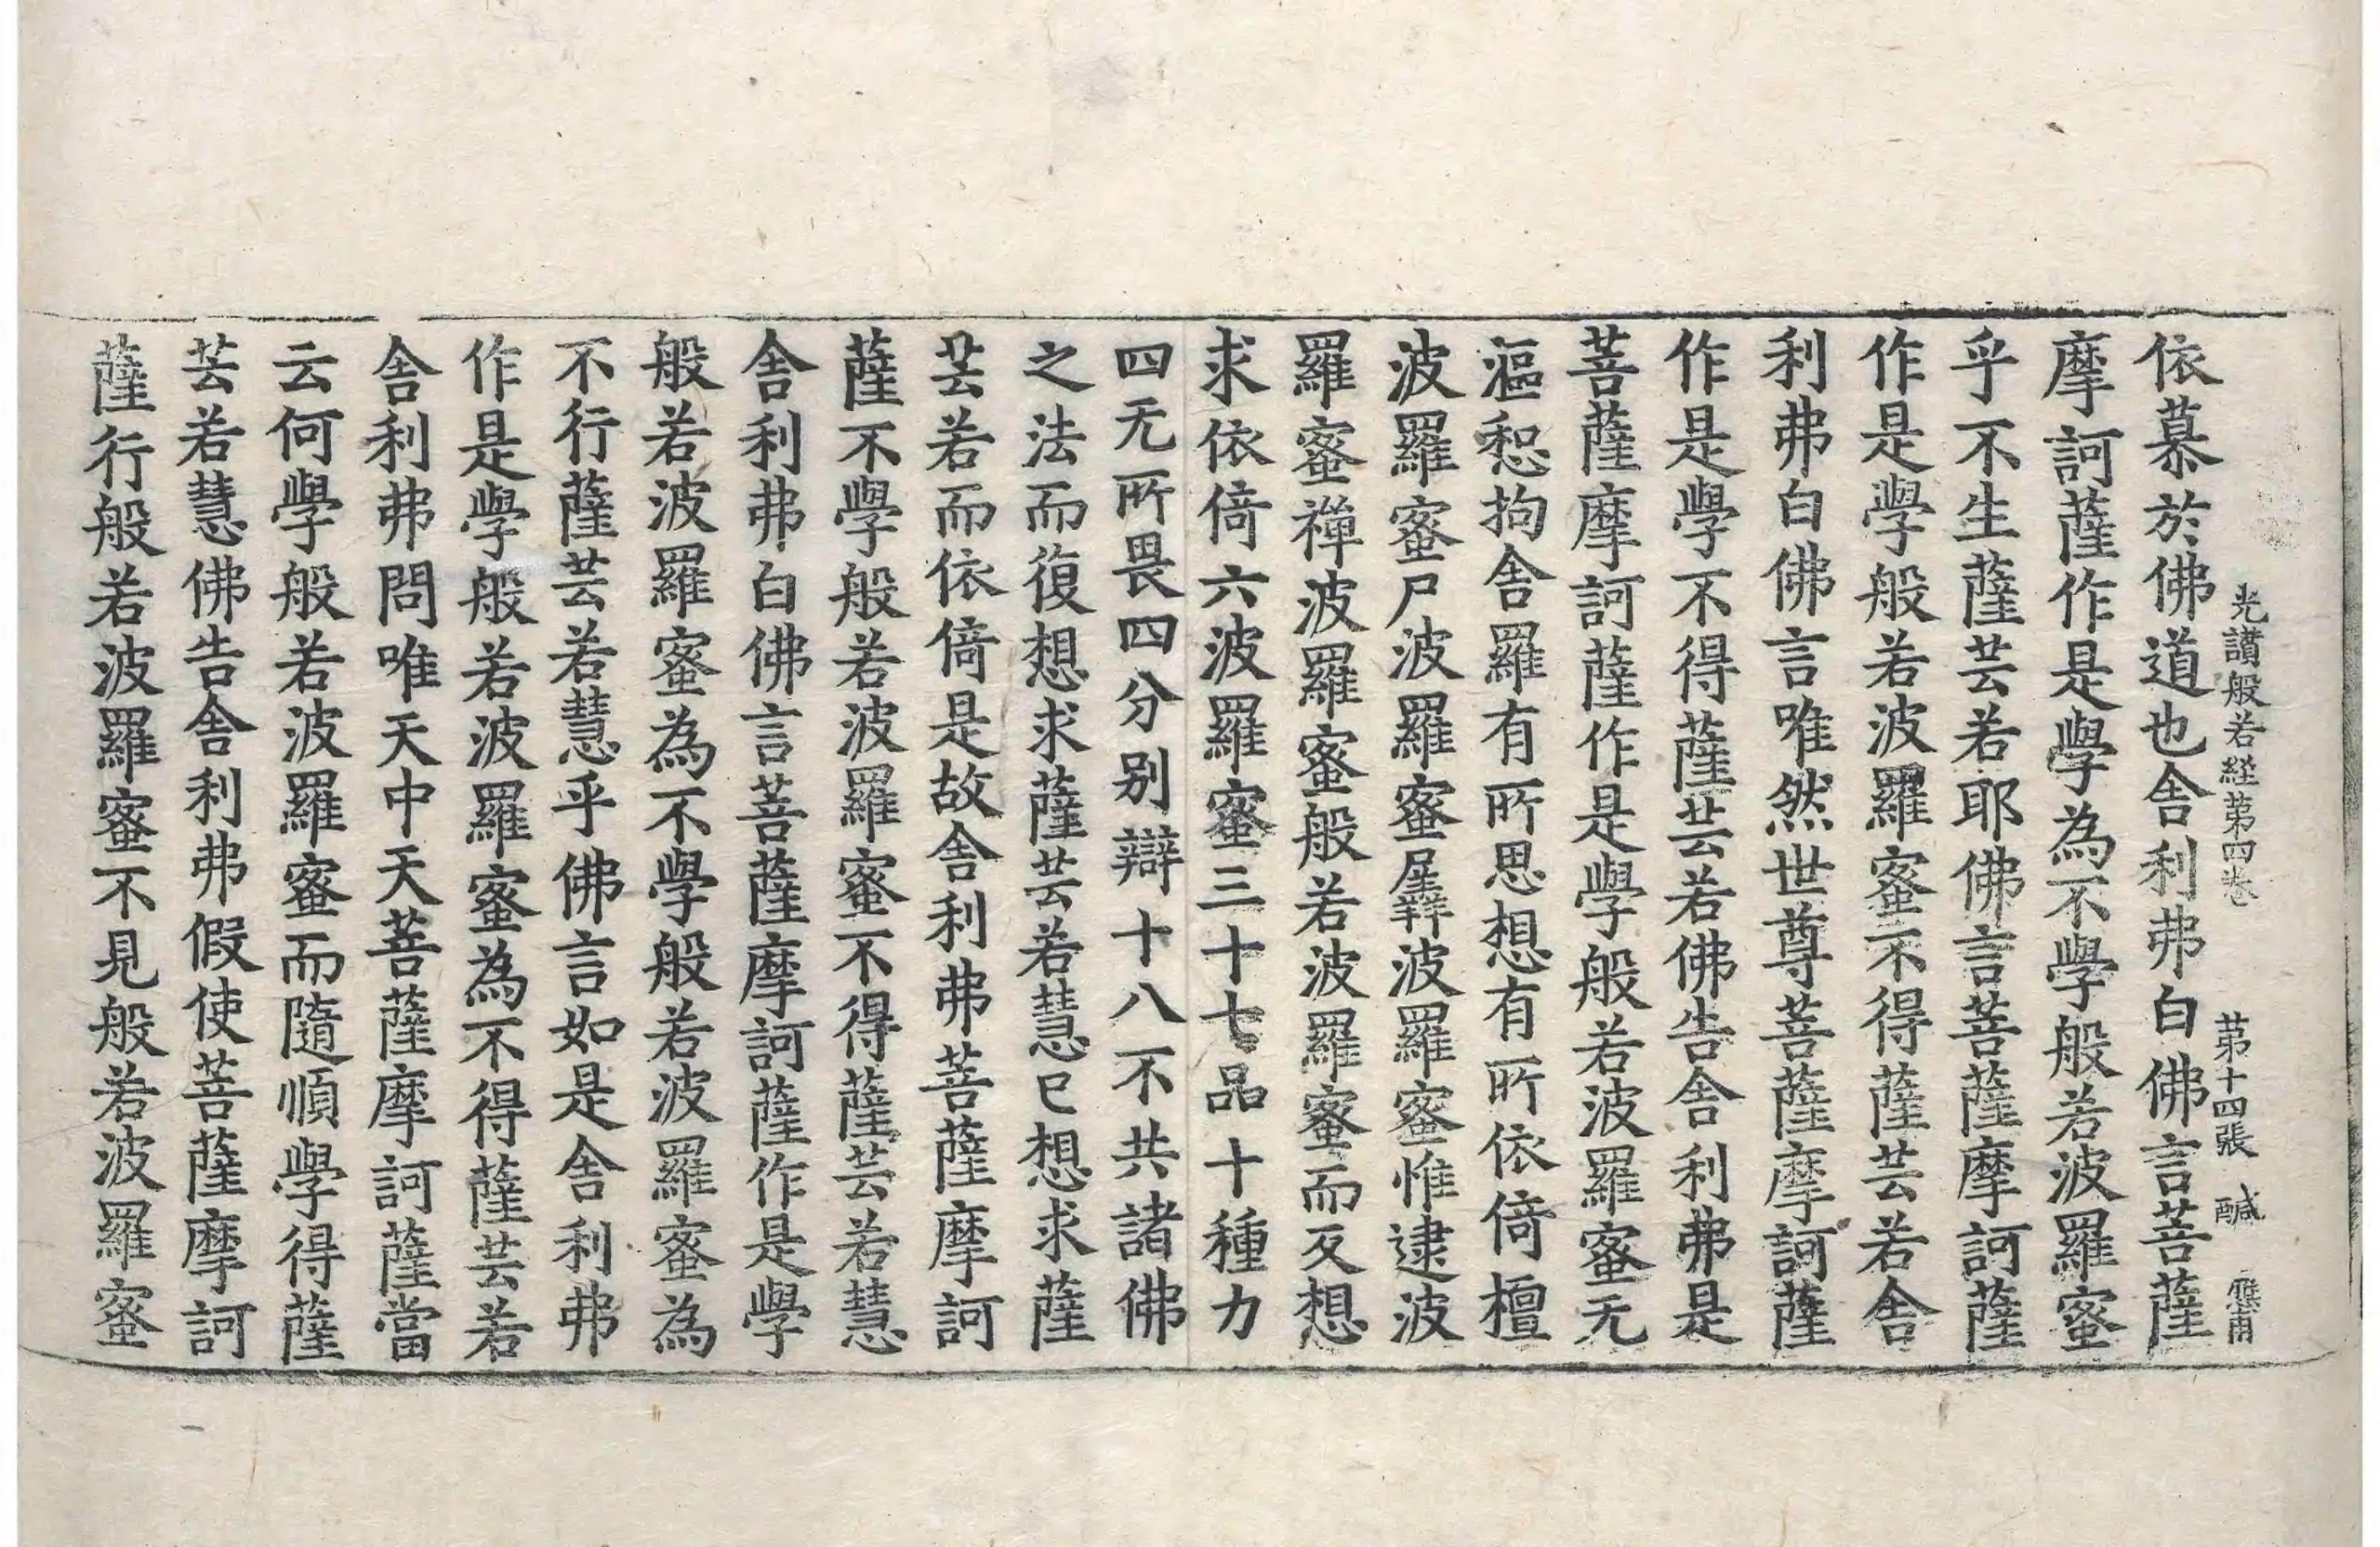 光讃般若経第四卷　第十四張　醎
依慕於佛道也舎利弗白佛言菩薩
摩訶薩作是學為不學般若波羅蜜
乎不生薩芸若耶佛言菩薩摩訶薩
作是學般若波羅蜜不得薩芸若舎
利弗白佛言唯然世尊菩薩摩訶薩
作是學不得薩芸若佛告舎利弗是
菩薩摩訶薩作是學般若波羅蜜无
漚惒拘舎羅有所思想有所依倚檀
波羅蜜尸波羅蜜羼波羅蜜惟逮波
羅蜜禪波羅蜜般若波羅蜜而反想
求依倚六波羅蜜三十七品十種力
四无所畏四分别辯十八不共諸佛
之法而復想求薩芸若慧已想求薩
芸若而依倚是故舎利弗菩薩摩訶
薩不學般若波羅蜜不得薩芸若慧
舎利弗白佛言菩薩摩訶薩作是學
般若波羅蜜為不學般若波羅蜜為
不行薩芸若慧乎佛言如是舎利弗
作是學般若波羅蜜為不得薩芸若
舎利弗問唯天中天菩薩摩訶薩當
云何學般若波羅蜜而隨順學得薩
芸若慧佛告舎利弗假使菩薩摩訶
薩行般若波羅蜜不見般若波羅蜜